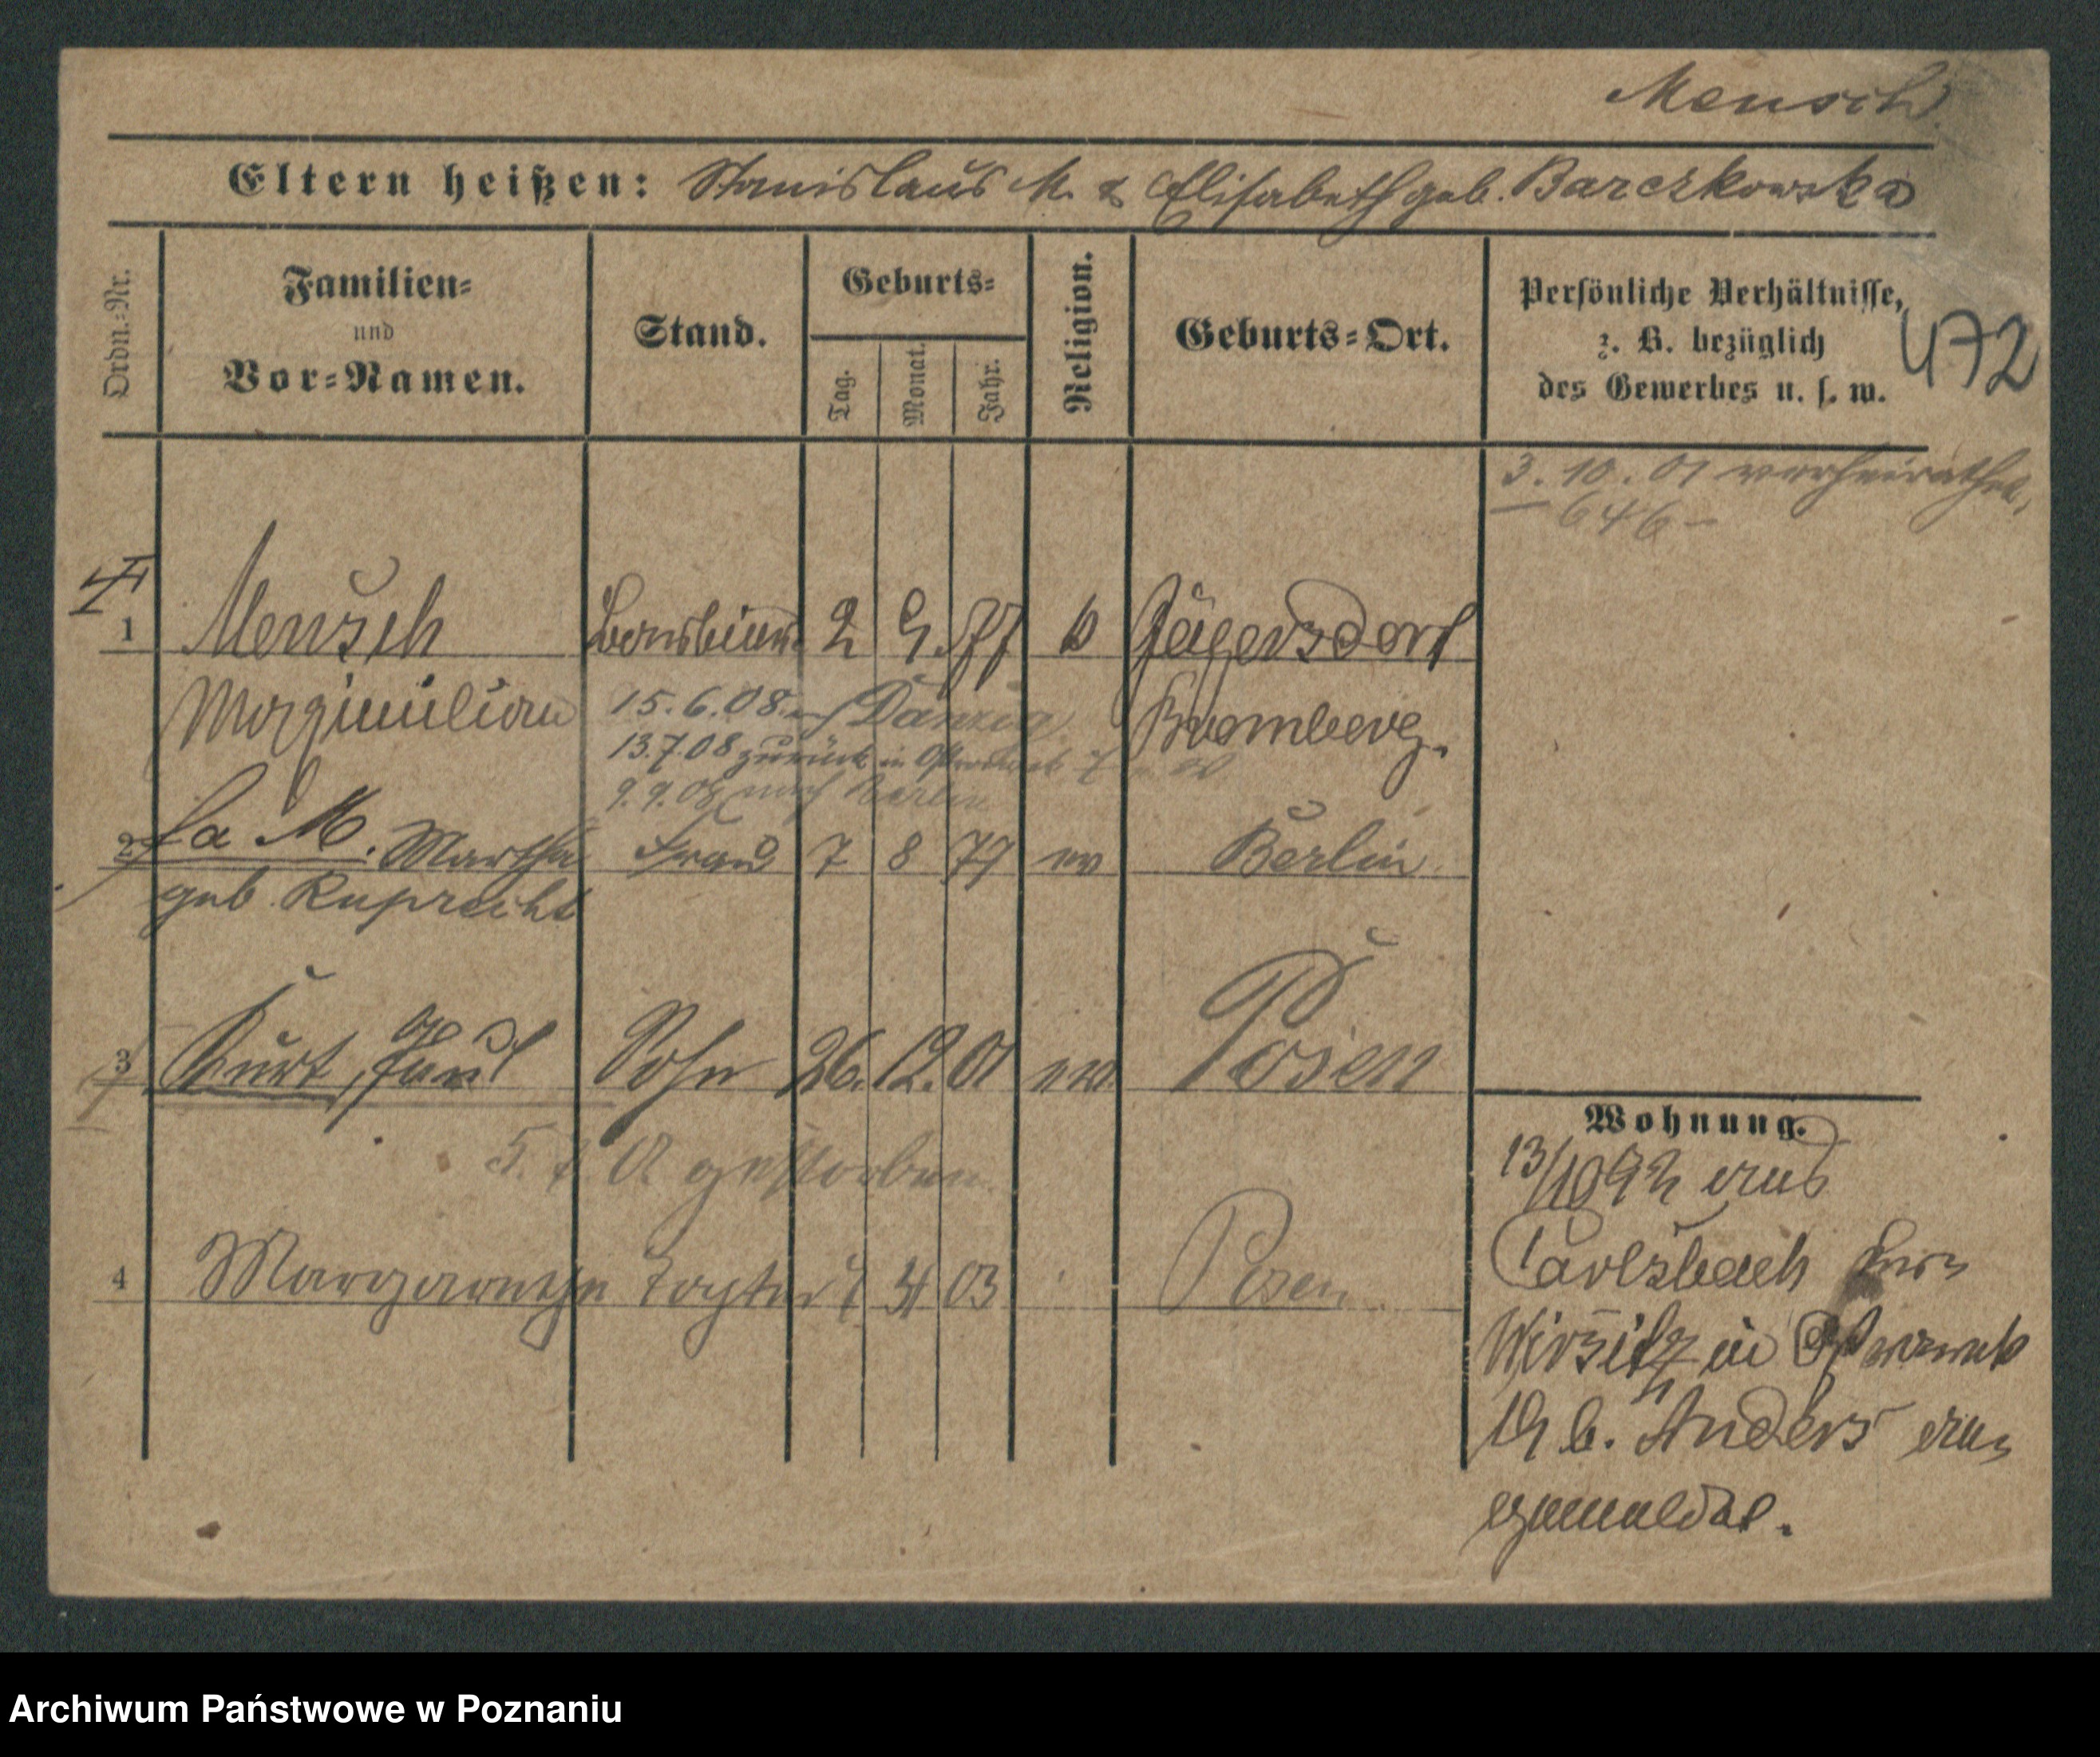 Mensch
Eltern heißen: Stanislaus M. & Elisabeth geb. Barczkowska
Ordn.-Nr.
Familien-
und
Vor-Namen.
Stand.
Geburts-
Tag.
Monat.
Jahr.
Religion.
Geburts-Ort.
Persönliche Verhältnisse,
z. B. bezüglich
des Gewerbes u. s. w.
472
3. 10. 01 verheirathet,
– 646 –
1 Mensch 2 9. 77 k Jägersdorf
Maximilian Bromberg.
15.6.08. nach Danzig
13.7.08 zurück in
9.9.08 nach Berlin
2 M. Martha Frau 7 8 79 ev Berlin
geb. Ruprecht
3 Kurt, Paul Sohn 26. 12. 01 ev. Posen
gestorben
4 Margarethe Tochter 4 03 Posen
Wohnung.
13/10 92 aus
Carlsbach
Wirsitz in
b. Anders
Archiwum Państwowe w Poznaniu